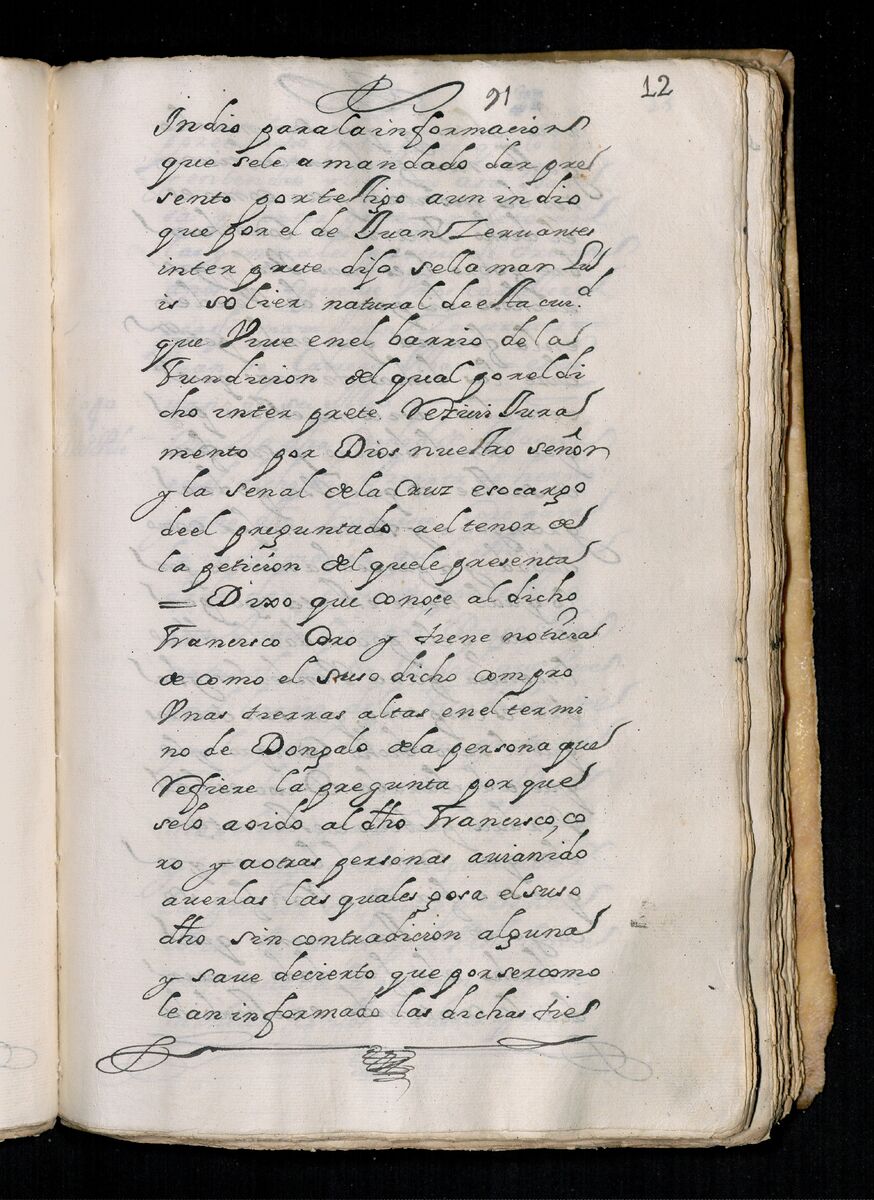 91
12
Indio para la informacion
que sele a mandado dar pre
sento por testigo a un indio
que por el de Juan Zervantes
inter prete dijo sellamar Lu
is solier natural de esta ciu.d
que Vive en el barrio de la
Fundicion del qual por el di
cho inter prete Reziui Jura
mento por Dios nuestro señor
y la señal de la Cruz eso cargo
de el preguntado a el tenor de
la petiçion del que le presenta
= Dixo que conoçe al dicho
Francisco Coro y tiene notiçia
de como el suso dicho compro
Vnas tierras altas en el termi
no de Dongalo de la persona que
Refiere la pregunta por que
selo a oido al dho Francisco, co
ro y a otras personas auian ido
a uerlas las quales gosa el suso
dho sin contradicion alguna
y saue de cierto que por ser como
le an informado las dichas tie